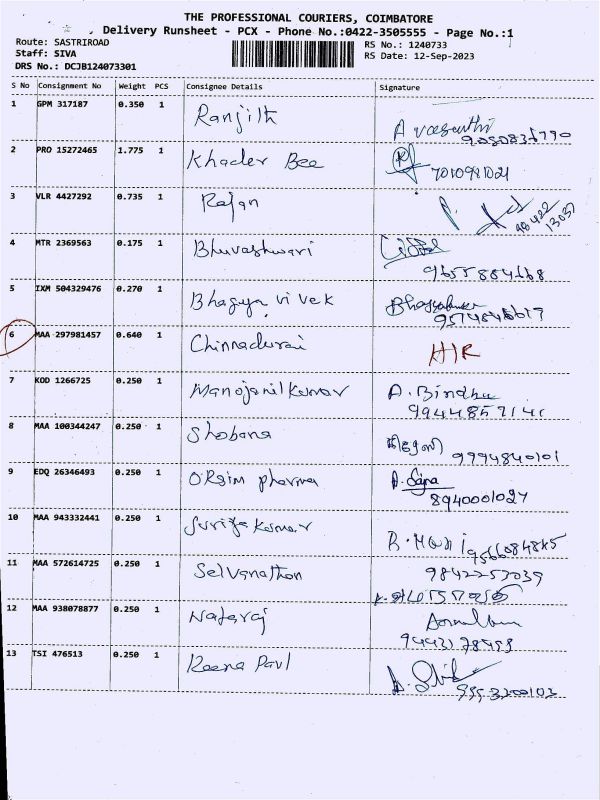 THE PROFESSIONAL COURIERS, COIMBATORE
Delivery Runsheet - PCX - Phone No.:0422-3505555 - Page No.:1
Route: SASTRIROAD
Staff: SIVA
DRS No.: DCJB124073301
RS No.: 1240733
RS Date: 12-Sep-2023
S No Consignment No Weight PCS Consignee Details Signature
1 GPM 317187 0.350 1 Ranjith A vasanthi
2 PRO 15272465 1.775 1 Khader Bee 7010981021
3 VLR 4427292 0.735 1 Rajan
4 MTR 2369563 0.175 1 Bhuvashwari
9655884168
5 IXM 504329476 0.270 1 Bhagya vivek
6 MAA 297981457 0.640 1 Chinnadurai H/R
7 KOD 1266725 0.250 1 Manojanilkumar A. Bindhu
9944857141
8 MAA 100344247 0.250 1 Shobana 9994840101
9 EDQ 26346493 0.250 1 ORgim pharma
8940001027
10 MAA 943332441 0.250 1 Suriyakumar R. Mani 9566084845
11 MAA 572614725 0.250 1 Selvanathan 9842253039
12 MAA 938078877 0.250 1 Nataraj
13 TSI 476513 0.250 1 Reena Paul